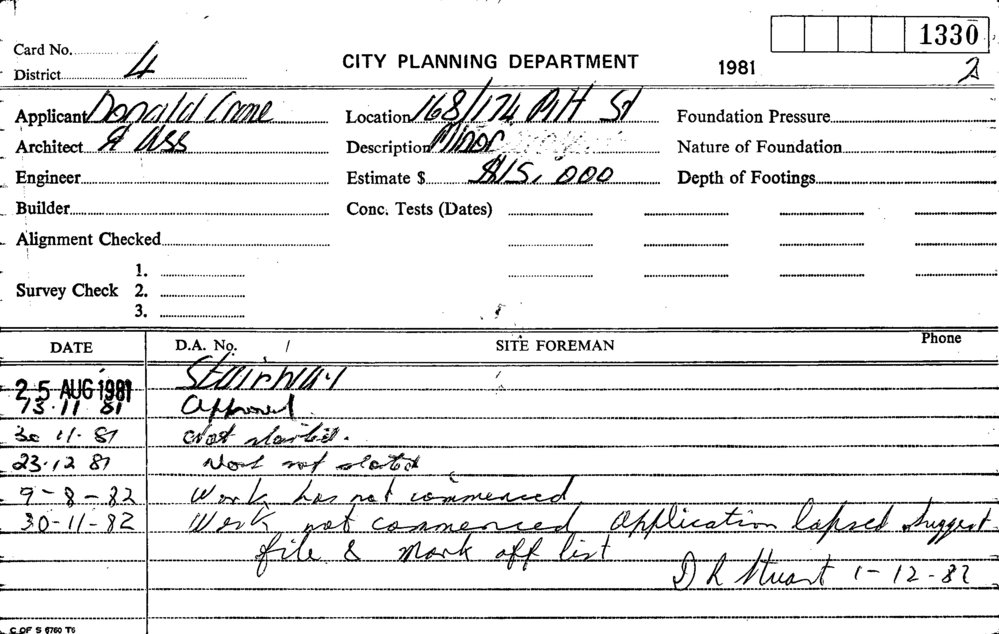 1330
Card No.
CITY PLANNING DEPARTMENT
1981
2
District 4
Applicant Donald Crone
Location 168/174 Pitt St
Foundation Pressure
Architect & Ass
Description Minor
Nature of Foundation
Engineer
Estimate $ $15,000
Depth of Footings
Builder
Conc. Tests (Dates)
Alignment Checked
1.
Survey Check 2.
3.
DATE D.A. No. / SITE FOREMAN Phone
25 AUG 1981 Stairway
13.11 81 Approved.
30 11.81 Not started.
23.12 81 Work not started
9-8-82 Work has not commenced
30-11-82 Work not commenced Application lapsed suggest
file & mark off list
D R Stuart 1-12-82
C OF S 6760 T6